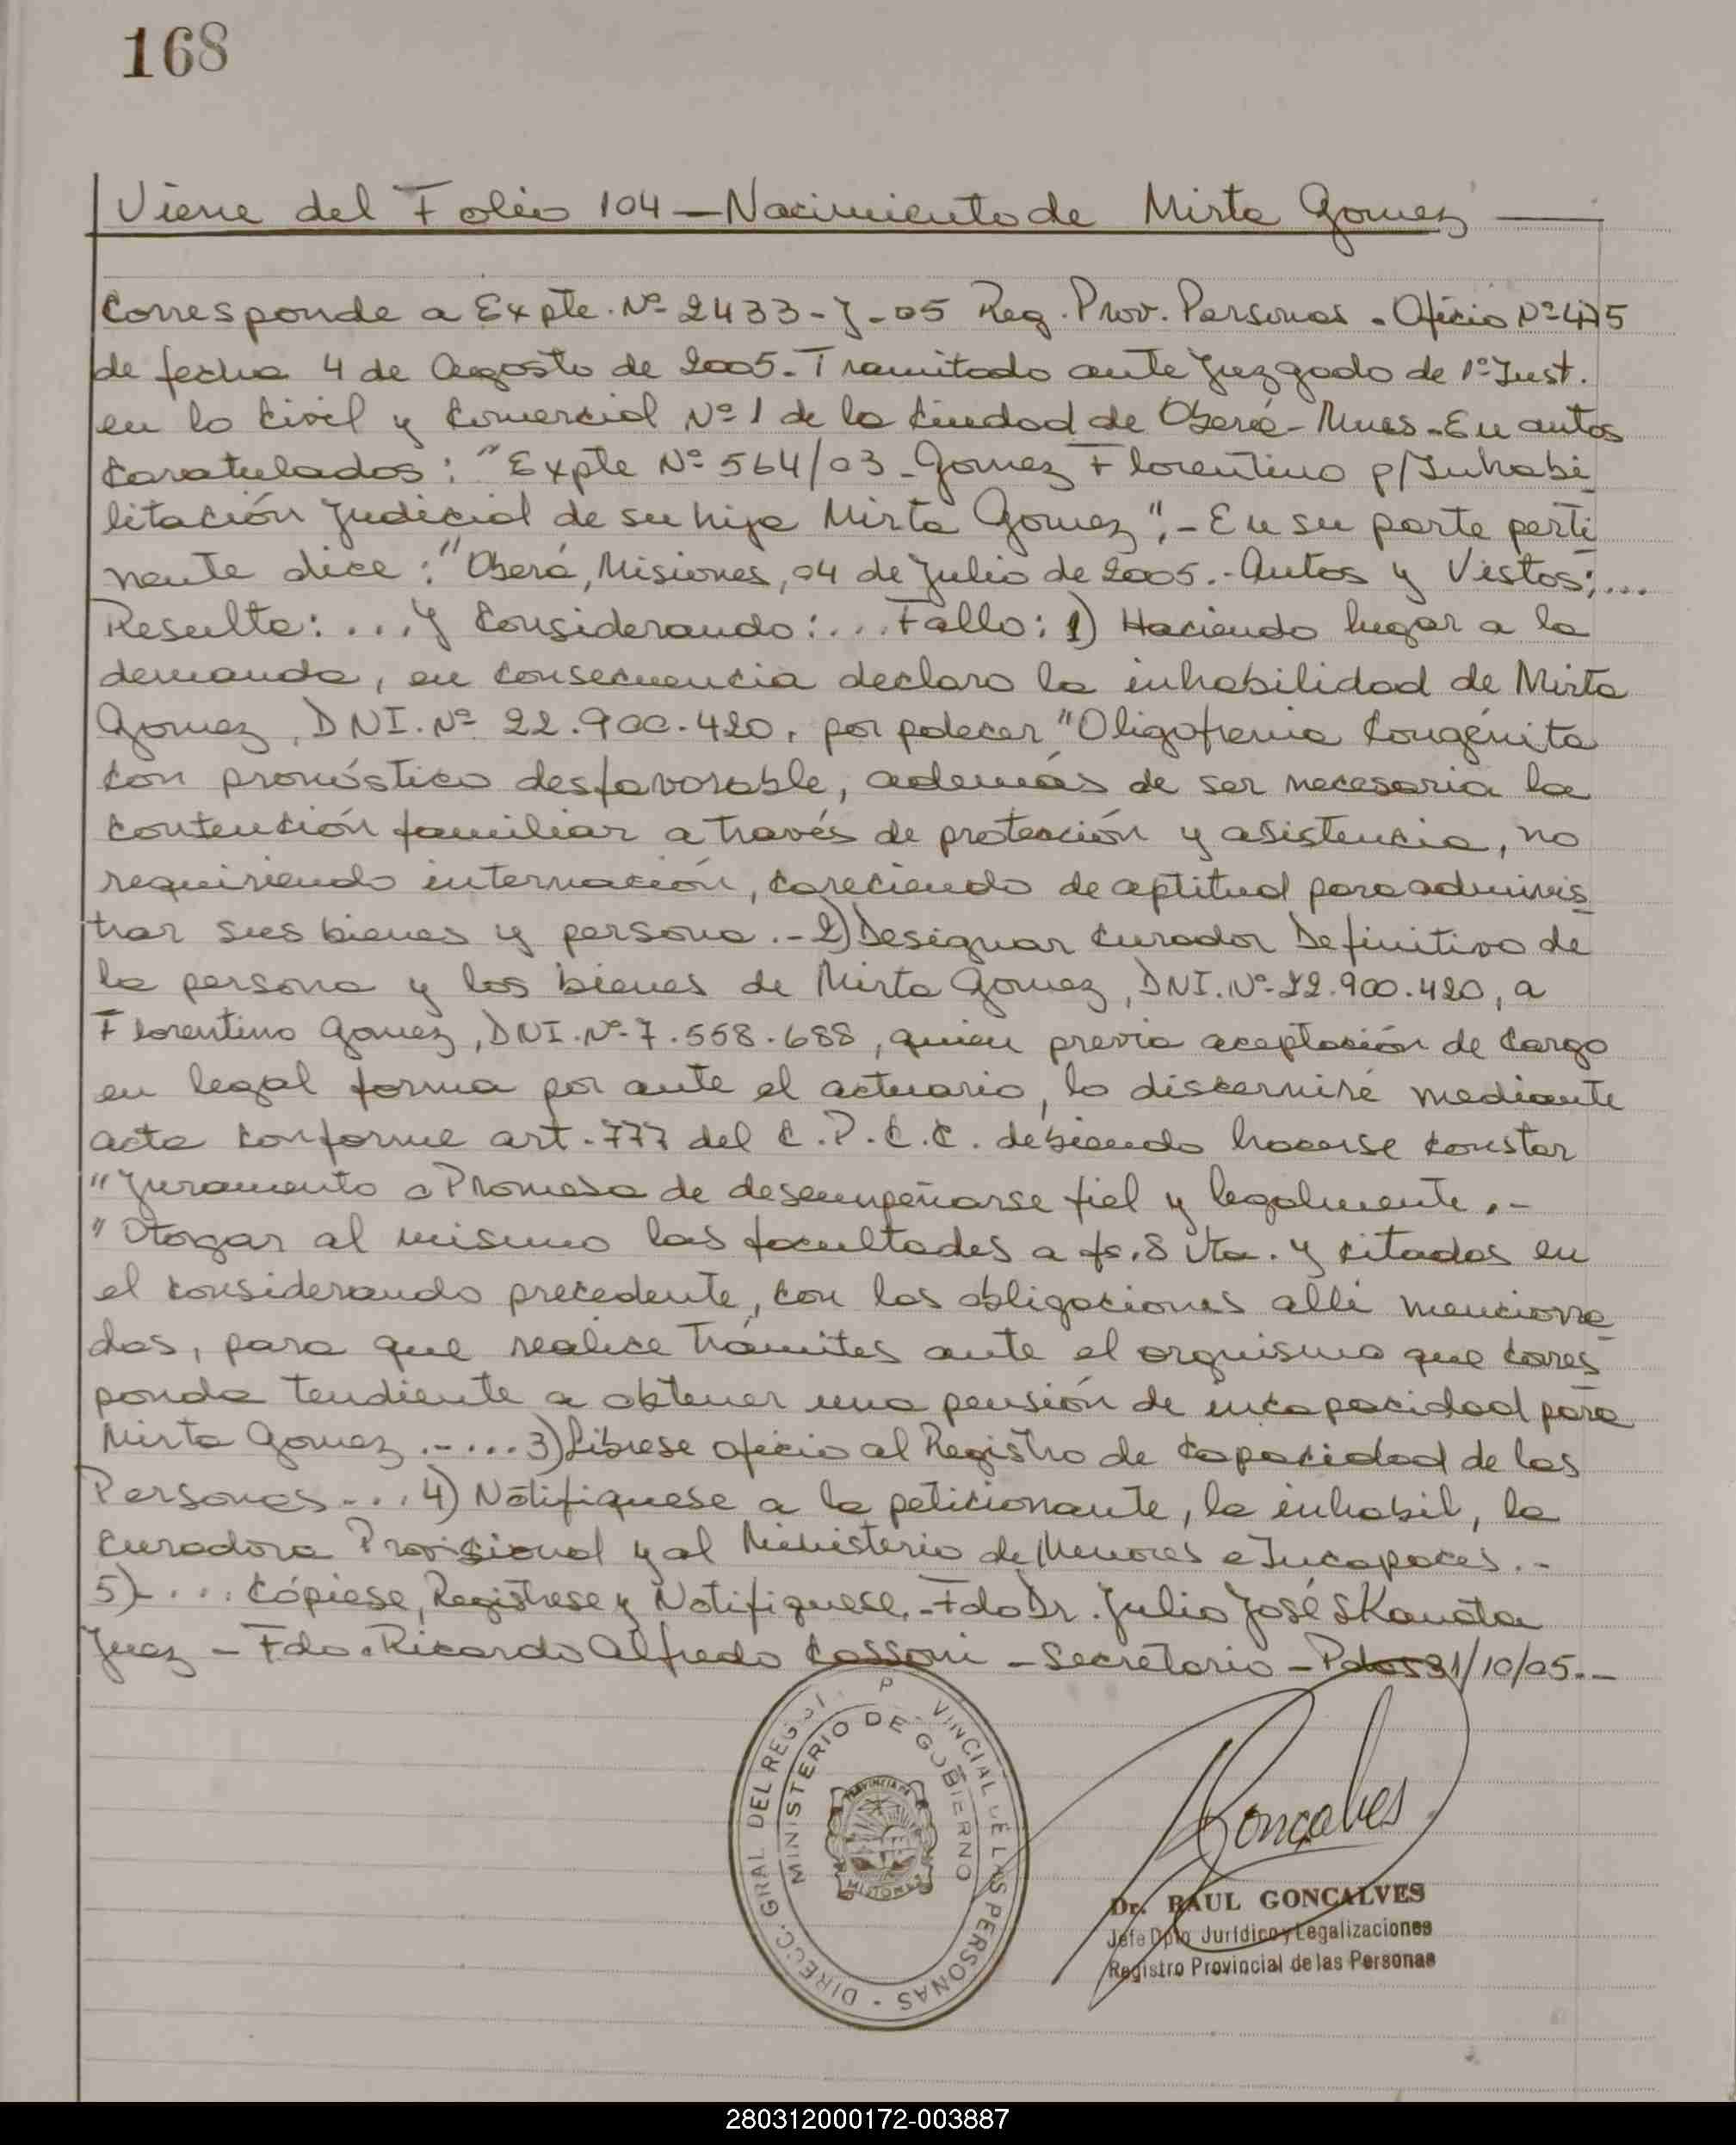 168
Viene del Folio 104 – Nacimiento de Mirta Gomez
Corresponde a Expte. Nº 2433-J-05 Reg. Prov. Personas. Oficio Nº
de fecha 4 de Agosto de 2005. Tramitado ante Juzgado de 1º Inst.
en lo Civil y Comercial Nº 1 de la Ciudad de Oberá - Mnes. En autos
Caratulados: "Expte Nº 564/03 - Gomez Florentino p/Inhabi
litación Judicial de su hija Mirta Gomez". - En su parte perti
nente dice: "Oberá, Misiones, 04 de Julio de 2005.- Autos y Vistos;...
Resulta: ... Y Considerando: ... Fallo: 1) Haciendo lugar a la
demanda, en consecuencia declaro la inhabilidad de Mirta
Gomez, DNI. Nº 22.900.420, por padecer "Oligofrenia Congénita
con pronóstico desfavorable, además de ser necesaria la
contención familiar a través de protección y asistencia, no
requiriendo internación, careciendo de aptitud para adminis
trar sus bienes y persona.- 2) Designar Curador Definitivo de
la persona y los bienes de Mirta Gomez, DNI. Nº 22.900.420, a
Florentino Gomez, DNI. Nº 7.558.688, quien previa aceptación de Cargo
en legal forma por ante el actuario, lo discerniré mediante
acta conforme art. 777 del C.P.C.C. debiendo hacerse constar
"Juramento o Promesa de desempeñarse fiel y legalmente.-
"Otogar al mismo las facultades a fs. 8 Vta. y citadas en
el considerando precedente, con las obligaciones allí menciona
das, para que realice trámites ante el orgnismo que corres
ponda tendiente a obtener una pensión de incapacidad para
Mirta Gomez.-... 3) Líbrese oficio al Registro de Capacidad de las
Personas... 4) Notifiquese a la peticionante, la inhabil, la
Curadora Provisional y al Ministerio de Menores e Incapaces.-
5)... Cópiese, Registrese y Notifiquese.- Fdo Dr. Julio José Skanata
Juez - Fdo. Ricardo Alfredo Cassoni - Secretario - Pdas 31/10/05.-
DIRECC. GRAL. DEL REGIST. P VINCIAL DE LAS PERSONAS -
MINISTERIO DE GOBIERNO
PROVINCIA DE
MISIONES
Goncalves
Dr. RAUL GONCALVES
Jefe Dpto Jurídico y Legalizaciones
Registro Provincial de las Personas
280312000172-003887